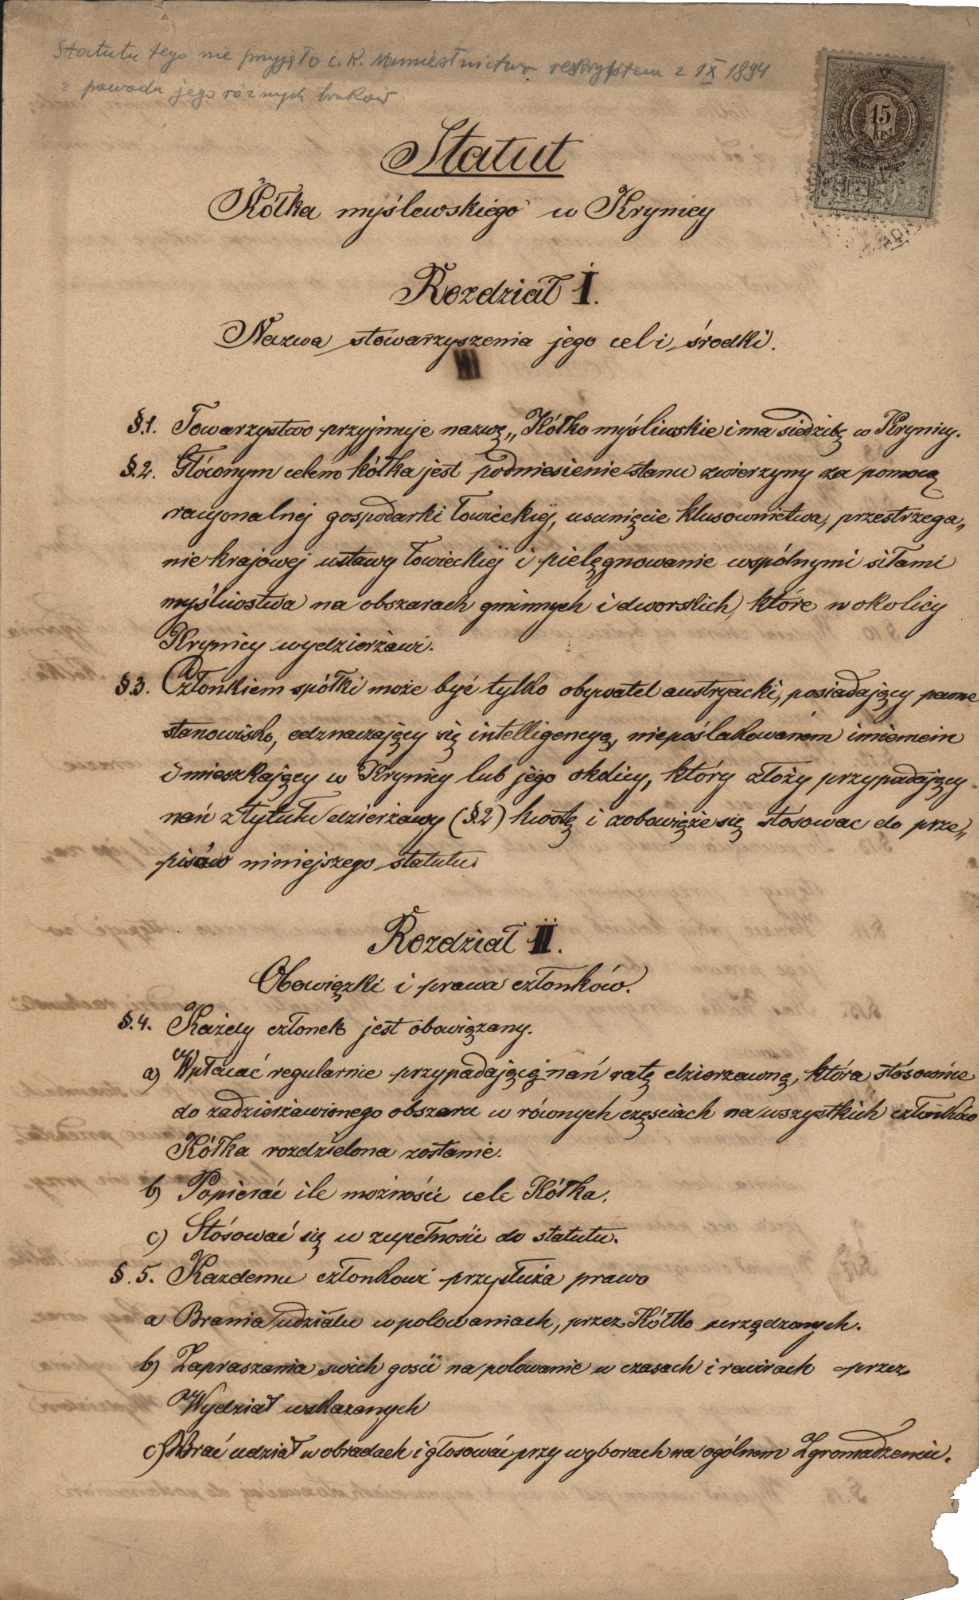 Statutu tego nie przyjęło c. K. Namiestnictwo reskryptem z 1 IX 1894
z powodu jego różnych braków
15
Statut
Kółka myślewskiego w Krynicy
Rozdział I.
Nazwa stowarzyszenia jego cel i środki.
§.1. Towarzystwo przyjmuje nazwę „Kółko myśliwskie i ma siedzibę w Krynicy.
§.2. Głównym celem kółka jest podniesienie stanu zwierzyny za pomocą
racyonalnej gospodarki łowieckiej, usunięcie kłusownictwa, przestrzega„
nie krajowej ustawy łowieckiej i pielęgnowanie wspólnymi siłami
myśliwstwa na obszarach gminnych i dworskich, które w okolicy
Krynicy wydzierżawi.
§.3. Członkiem spółki może być tylko obywatel austryacki, posiadający pewne
stanowisko, odznaczający się intelligencyą, nieposzlakowanem imieniem
i mieszkający w Krynicy lub jego okolicy, który złoży przypadającą
nań z tytułu dzierżawy (§.2) kwotę i zobowiąże się stósowac do prze„
pisów niniejszego statutu
Rozdział II.
Obowiązki i prawa członków.
§.4. Każdy członek jest obowiązany.
a) Wpłacać regularnie przypadającą nań ratę dzierżawną, która stósownie
do zadzierżawionego obszaru w równych częściach na wszystkich członków
Kółka rozdzielona zostanie.
b) Popierać ile możności cele Kółka.
c) Stósować się w zupełności do statutu.
§.5. Kazdemu członkowi przysłuża prawo
a Brania udziału w polowaniach, przez Kółko urządzonych.
b) Zapraszania swich gości na polowanie w czasach i rewirach przez
Wydział wskazanych
c) Brać udział w obradach i głosować przy wyborach na ogólnem Zgromadzeniu.